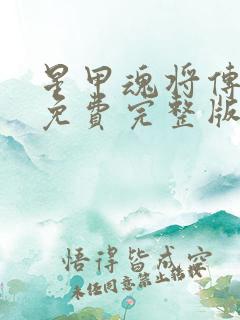 星甲魂将传
免費完整版
悟得皆成空
未经同意禁止转载